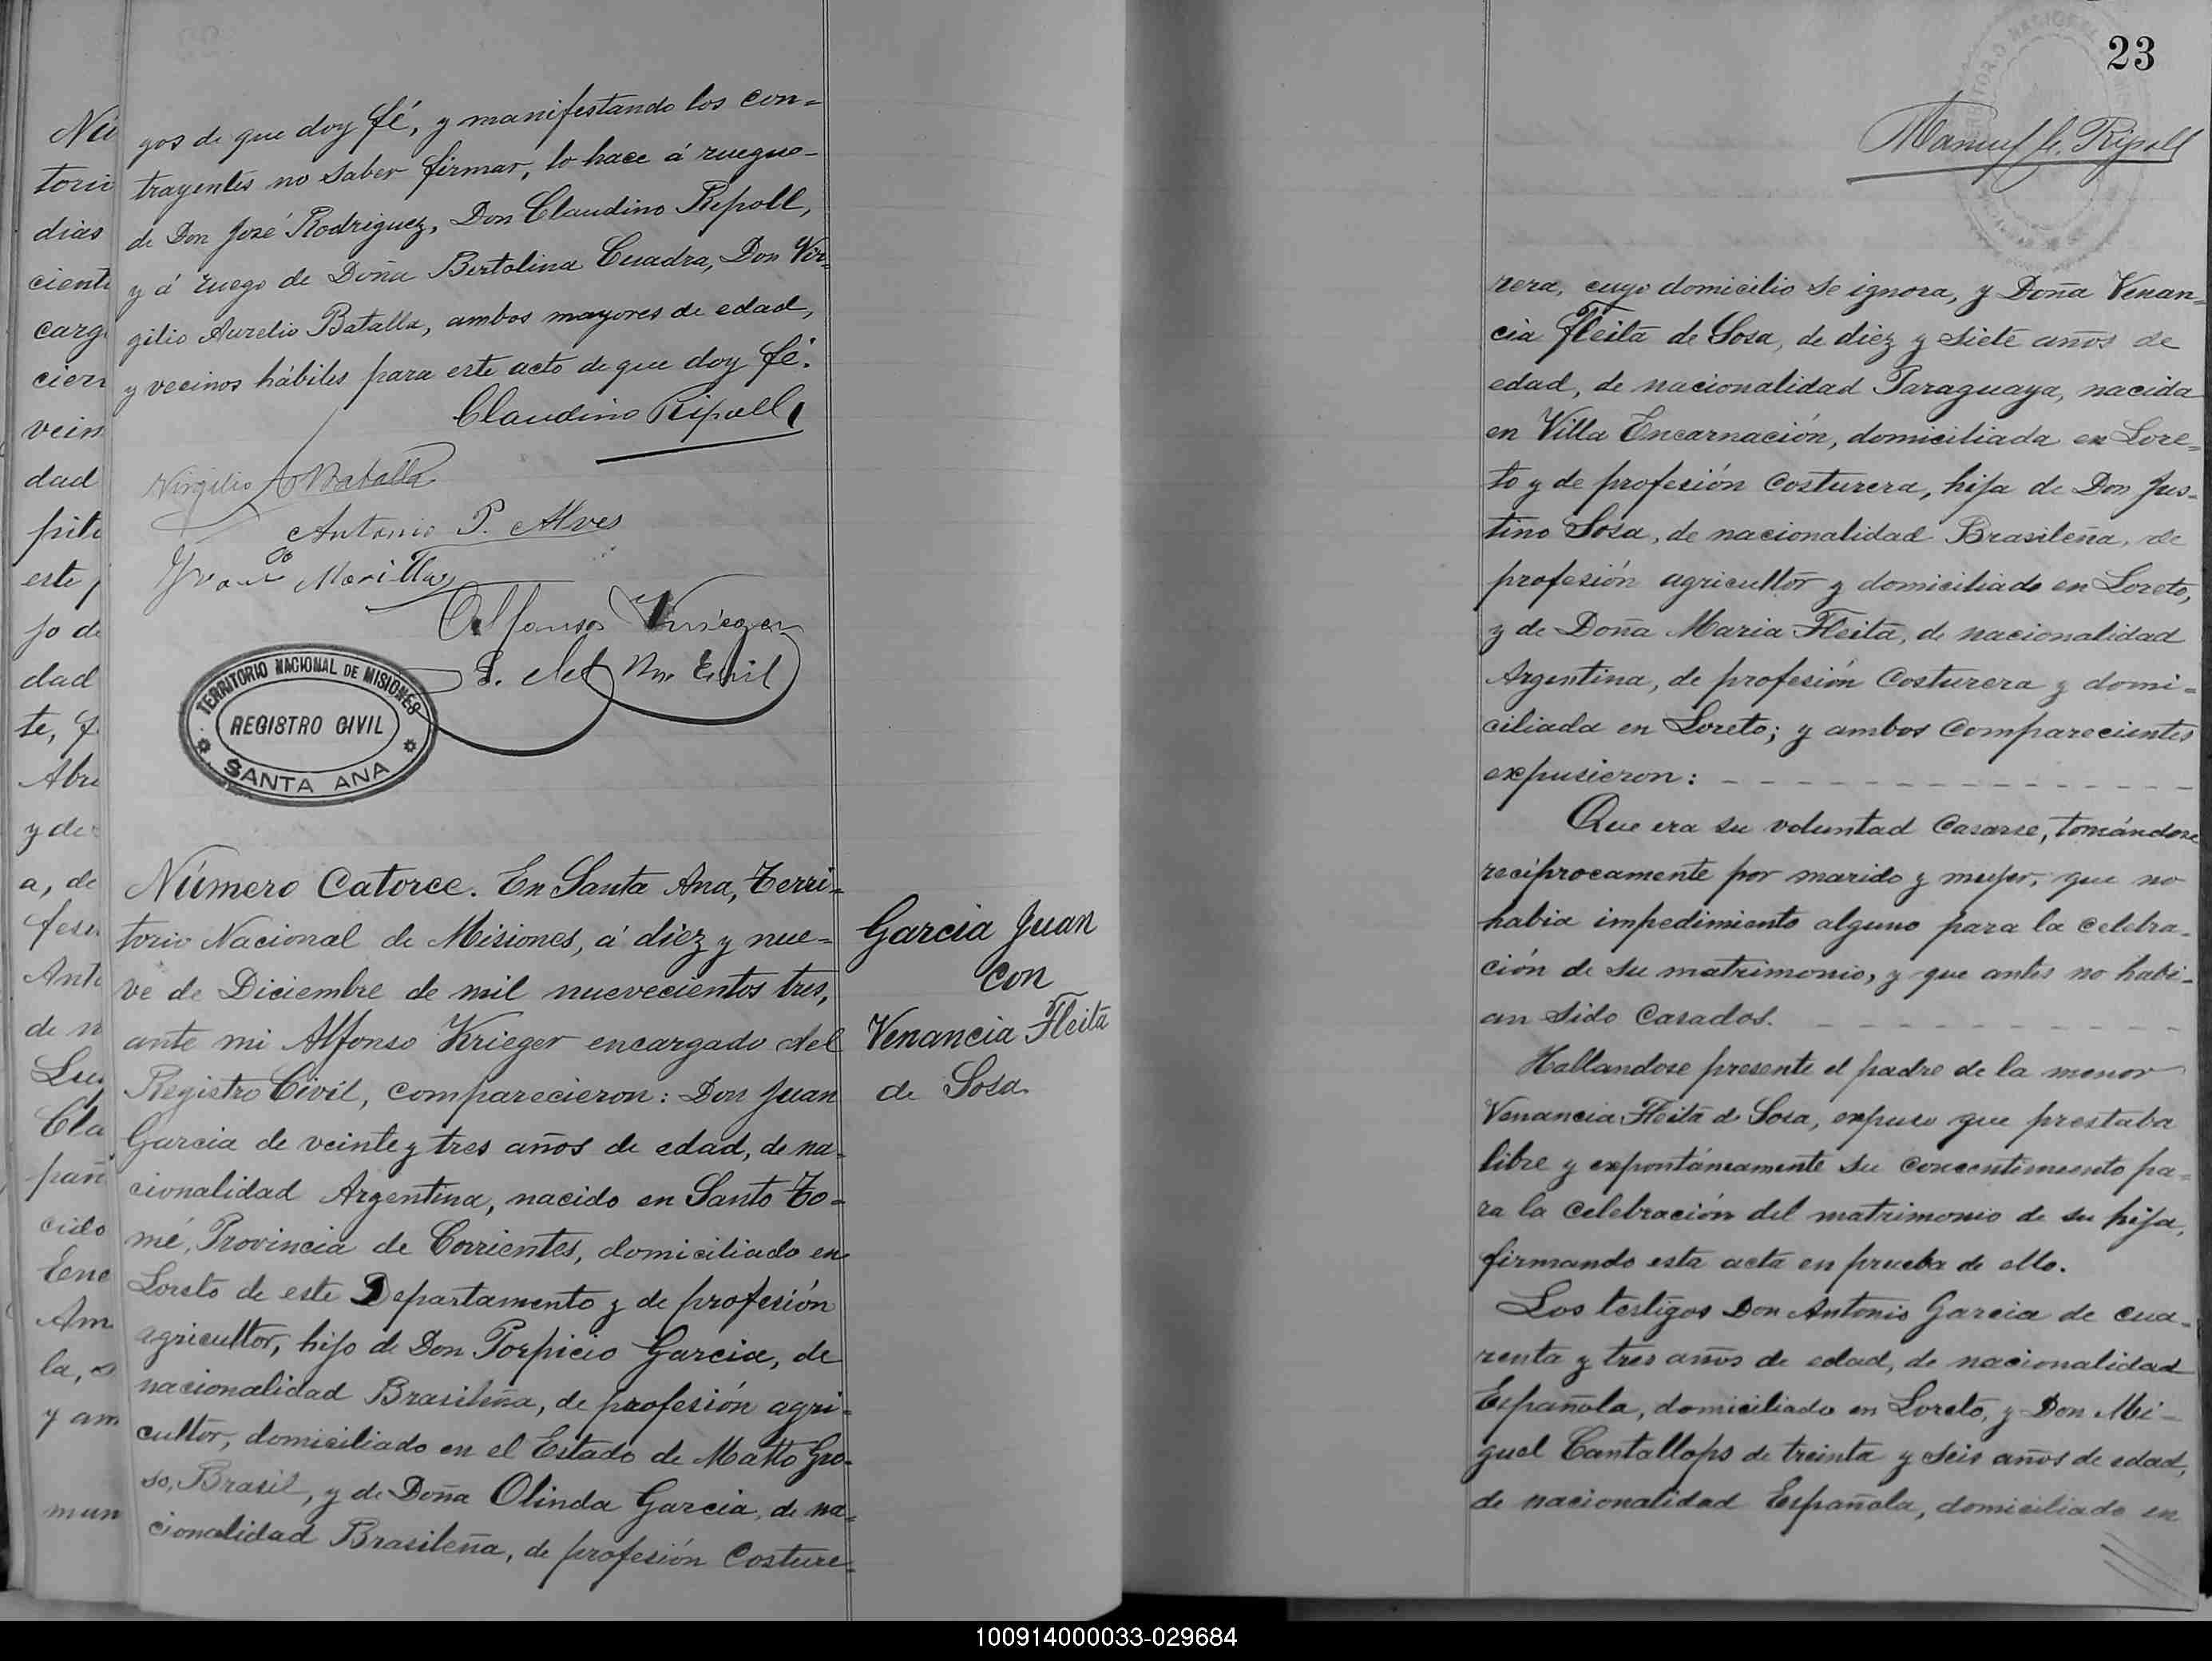 gos de que doy fé, y manifestando los con=
trayentes no saber firmar, lo hace á ruego
de Don José Rodriguez, Don Claudino Ripoll,
y á ruego de Doña Bertolina Cuadra, Don Vir=
gilio Aurelio Batalla, ambos mayores de edad,
y vecinos hábiles para este acto de que doy fé.
Claudino Ripoll
Virgilio A Batalla
Antonio P. Alves
Alfonso Krieger
TERRITORIO NACIONAL DE MISIONES
REGISTRO CIVIL
SANTA ANA
Número Catorce. En Santa Ana, Terri=
torio Nacional de Misiones, á diez y nue=
ve de Diciembre de mil nuevecientos tres,
ante mi Alfonso Krieger encargado del
Registro Civil, comparecieron: Don Juan
Garcia de veinte y tres años de edad, de na-
cionalidad Argentina, nacido en Santo To=
mé, Provincia de Corrientes, domiciliado en
Loreto de este Departamento y de profesión
agricultor, hijo de Don Porpicio Garcia, de
nacionalidad Brasileña, de profesión agri=
cultor, domiciliado en el Estado de Matto Gro-
so, Brasil, y de Doña Olinda Garcia, de na=
cionalidad Brasileña, de profesión Costure=
Garcia Juan
con
Venancia Fleita
de Sosa
Nú
torio
dias
ciento
carg
cien
vein
dad
este
jo de
dad
te,
Abri
y de
a, de
Anto
de n
Cla
pañ
cido
Enc
Am
la,
y am
mun
23
Manuel C. Ripoll
rera, cuyo domicilio se ignora, y Doña Venan=
cia Fleita de Sosa, de diez y siete años de
edad, de nacionalidad Paraguaya, nacida
en Villa Encarnación, domiciliada en Lore=
to y de profesión Costurera, hija de Don Jus-
tino Sosa, de nacionalidad Brasileña, de
profesión agricultor y domiciliado en Loreto,
y de Doña Maria Fleita, de nacionalidad
Argentina, de profesión Costurera y domi=
ciliada en Loreto; y ambos Comparecientes
expusieron:
Que era su voluntad Casarse, tomándose
recíprocamente por marido y mujer, que no
habia impedimiento alguno para la celebra-
ción de su matrimonio, y que antes no habi-
an sido Casados.
Hallandose presente el padre de la menor
Venancia Fleita de Sosa, expuso que prestaba
libre y expontáneamente su concentimiento pa=
ra la celebración del matrimonio de su hija,
firmando esta acta en prueba de ello.
Los testigos Don Antonio Garcia de cua-
renta y tres años de edad, de nacionalidad
Española, domiciliado en Loreto, y Don Mi-
guel Cantallops de treinta y seis años de edad,
de nacionalidad Española, domiciliado en
100914000033-029684